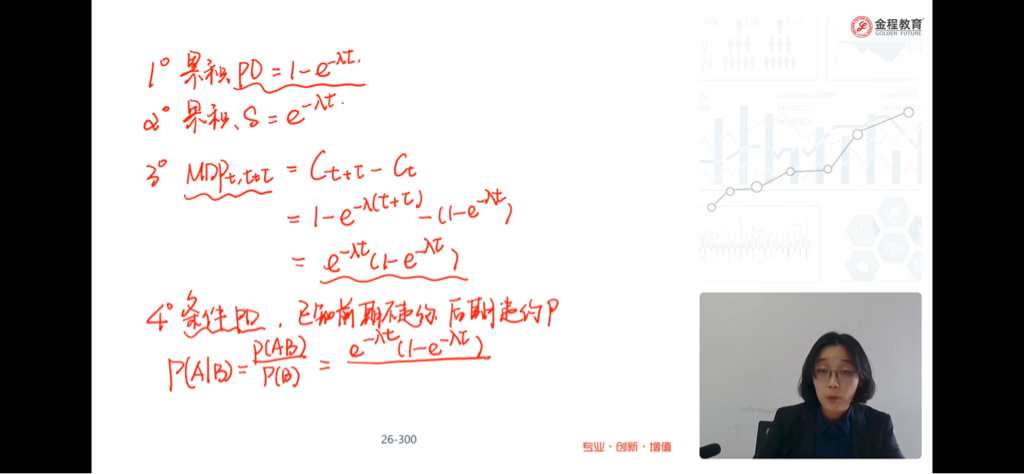 金程教育
GOLDEN FUTURE
1° 累积 PD = 1 - e^{-λt}.
2° 累积 S = e^{-λt}.
3° MDP_{t,t+τ} = C_{t+τ} - C_t
= 1 - e^{-λ(t+τ)} - (1 - e^{-λt})
= e^{-λt}(1 - e^{-λτ})
4° 条件PD, 已知前期不违约 后期违约 P
P(A|B) = P(AB)/P(B) = e^{-λt}(1 - e^{-λτ})
26-300
专业·创新·增值